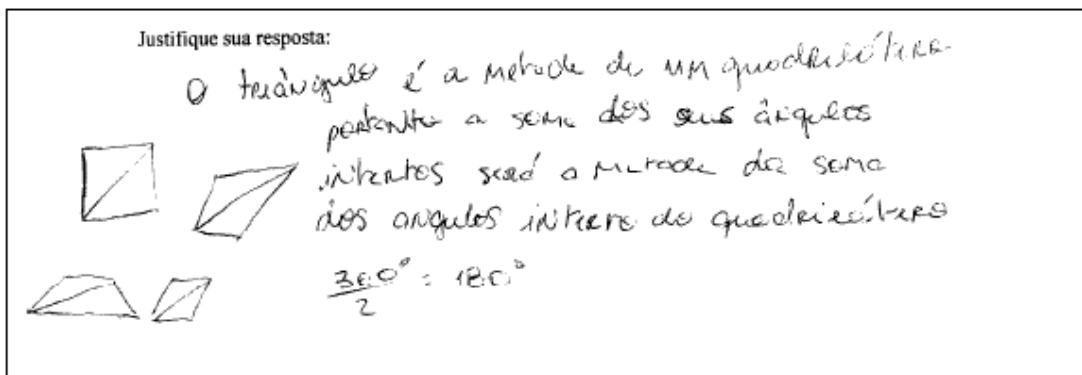 Justifique sua resposta:
O triângulo é a metade de um quadrilátero
portanto a soma dos seus ângulos
internos será a metade da soma
dos angulos interno do quadrilátero
360° / 2 = 180°